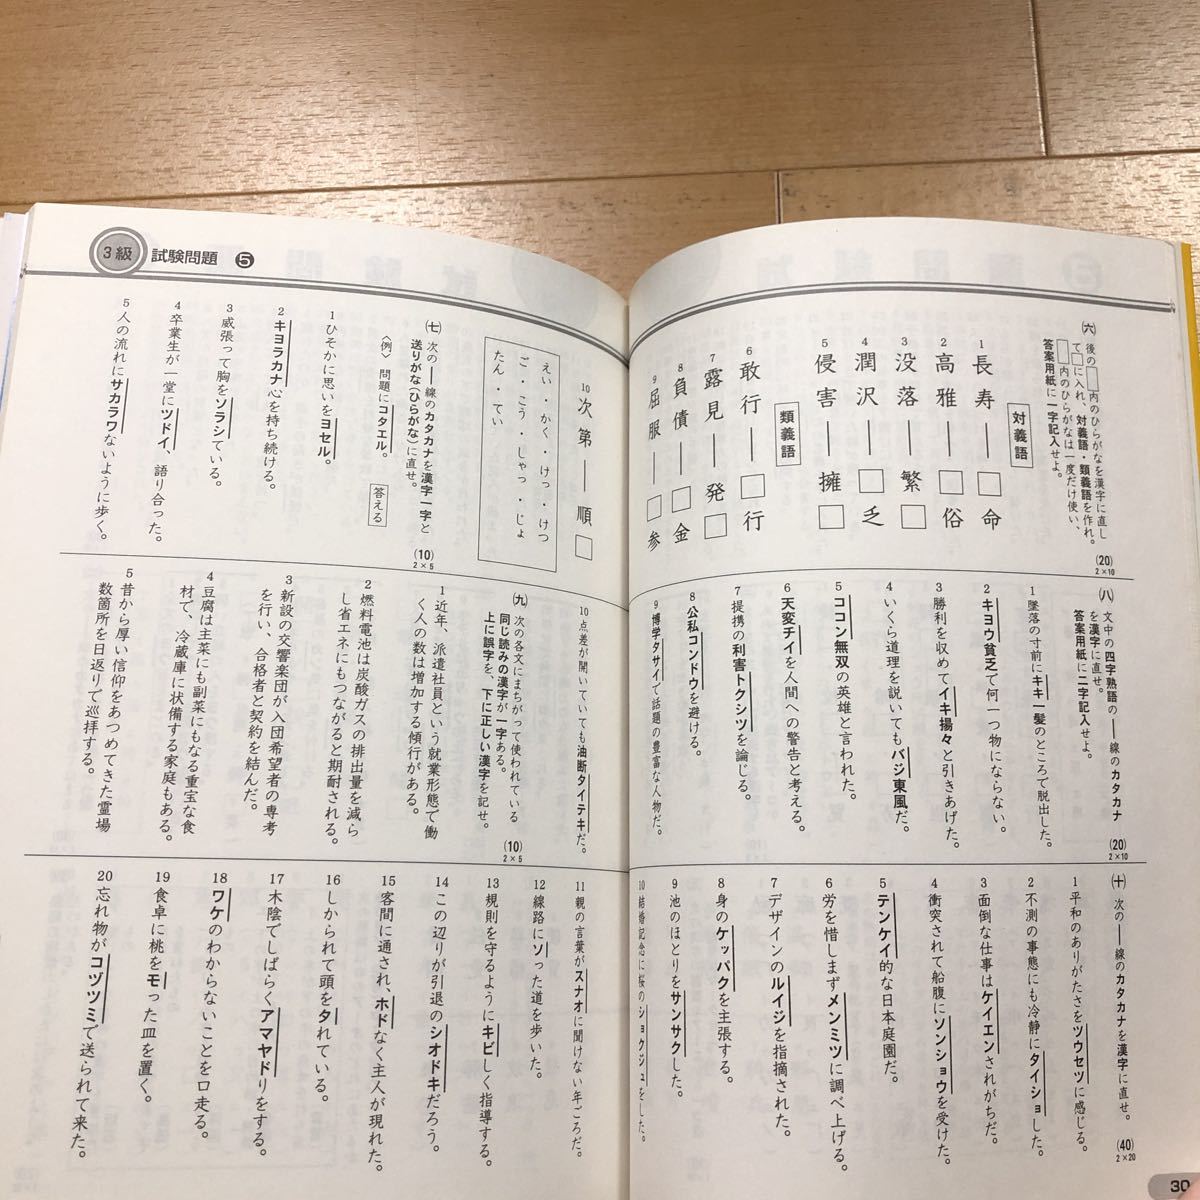 3級 試験問題 5
㈥ 後の□内のひらがなを漢字に直し
て□に入れ、対義語・類義語を作れ。
□内のひらがなは一度だけ使い、
答案用紙に一字記入せよ。
(20)
2×10
対義語
1 長寿――□命
2 高雅――□俗
3 没落――繁□
4 潤沢――□乏
5 侵害――擁□
類義語
6 敢行――□行
7 露見――発□
8 負債――□金
9 屈服――□参
10 次第――順□
えい・かく・けっ・けつ
ご・こう・しゃっ・じょ
たん・てい
㈦ 次の――線のカタカナを漢字一字と
送りがな(ひらがな)に直せ。
(10)
2×5
〈例〉 問題にコタエル。
答える
1 ひそかに思いをヨセル。
2 キヨラカナ心を持ち続ける。
3 威張って胸をソラシている。
4 卒業生が一堂にツドイ、語り合った。
5 人の流れにサカラワないように歩く。
㈧ 文中の四字熟語の――線のカタカナ
を漢字に直せ。
答案用紙に二字記入せよ。
(20)
2×10
1 墜落の寸前にキキ一髪のところで脱出した。
2 キヨウ貧乏で何一つ物にならない。
3 勝利を収めてイキ揚々と引きあげた。
4 いくら道理を説いてもバジ東風だ。
5 ココン無双の英雄と言われた。
6 天変チイを人間への警告と考える。
7 提携の利害トクシツを論じる。
8 公私コンドウを避ける。
9 博学タサイで話題の豊富な人物だ。
10 点差が開いていても油断タイテキだ。
㈨ 次の各文にまちがって使われている
同じ読みの漢字が一字ある。
上に誤字を、下に正しい漢字を記せ。
(10)
2×5
1 近年、派遣社員という就業形態で働
く人の数は増加する傾行がある。
2 燃料電池は炭酸ガスの排出量を減ら
し省エネにもつながると期耐される。
3 新設の交響楽団が入団希望者の専考
を行い、合格者と契約を結んだ。
4 豆腐は主菜にも副菜にもなる重宝な食
材で、冷蔵庫に状備する家庭もある。
5 昔から厚い信仰をあつめてきた霊場
数箇所を日返りで巡拝する。
㈩ 次の――線のカタカナを漢字に直せ。
(40)
2×20
1 平和のありがたさをツウセツに感じる。
2 不測の事態にも冷静にタイショした。
3 面倒な仕事はケイエンされがちだ。
4 衝突されて船腹にソンショウを受けた。
5 テンケイ的な日本庭園だ。
6 労を惜しまずメンミツに調べ上げる。
7 デザインのルイジを指摘された。
8 身のケッパクを主張する。
9 池のほとりをサンサクした。
10 結婚記念に桜のショクジュをした。
11 親の言葉がスナオに聞けない年ごろだ。
12 線路にソった道を歩いた。
13 規則を守るようにキビしく指導する。
14 この辺りが引退のシオドキだろう。
15 客間に通され、ホドなく主人が現れた。
16 しかられて頭をタれている。
17 木陰でしばらくアマヤドりをする。
18 ワケのわからないことを口走る。
19 食卓に桃をモった皿を置く。
20 忘れ物がコヅツミで送られて来た。
30